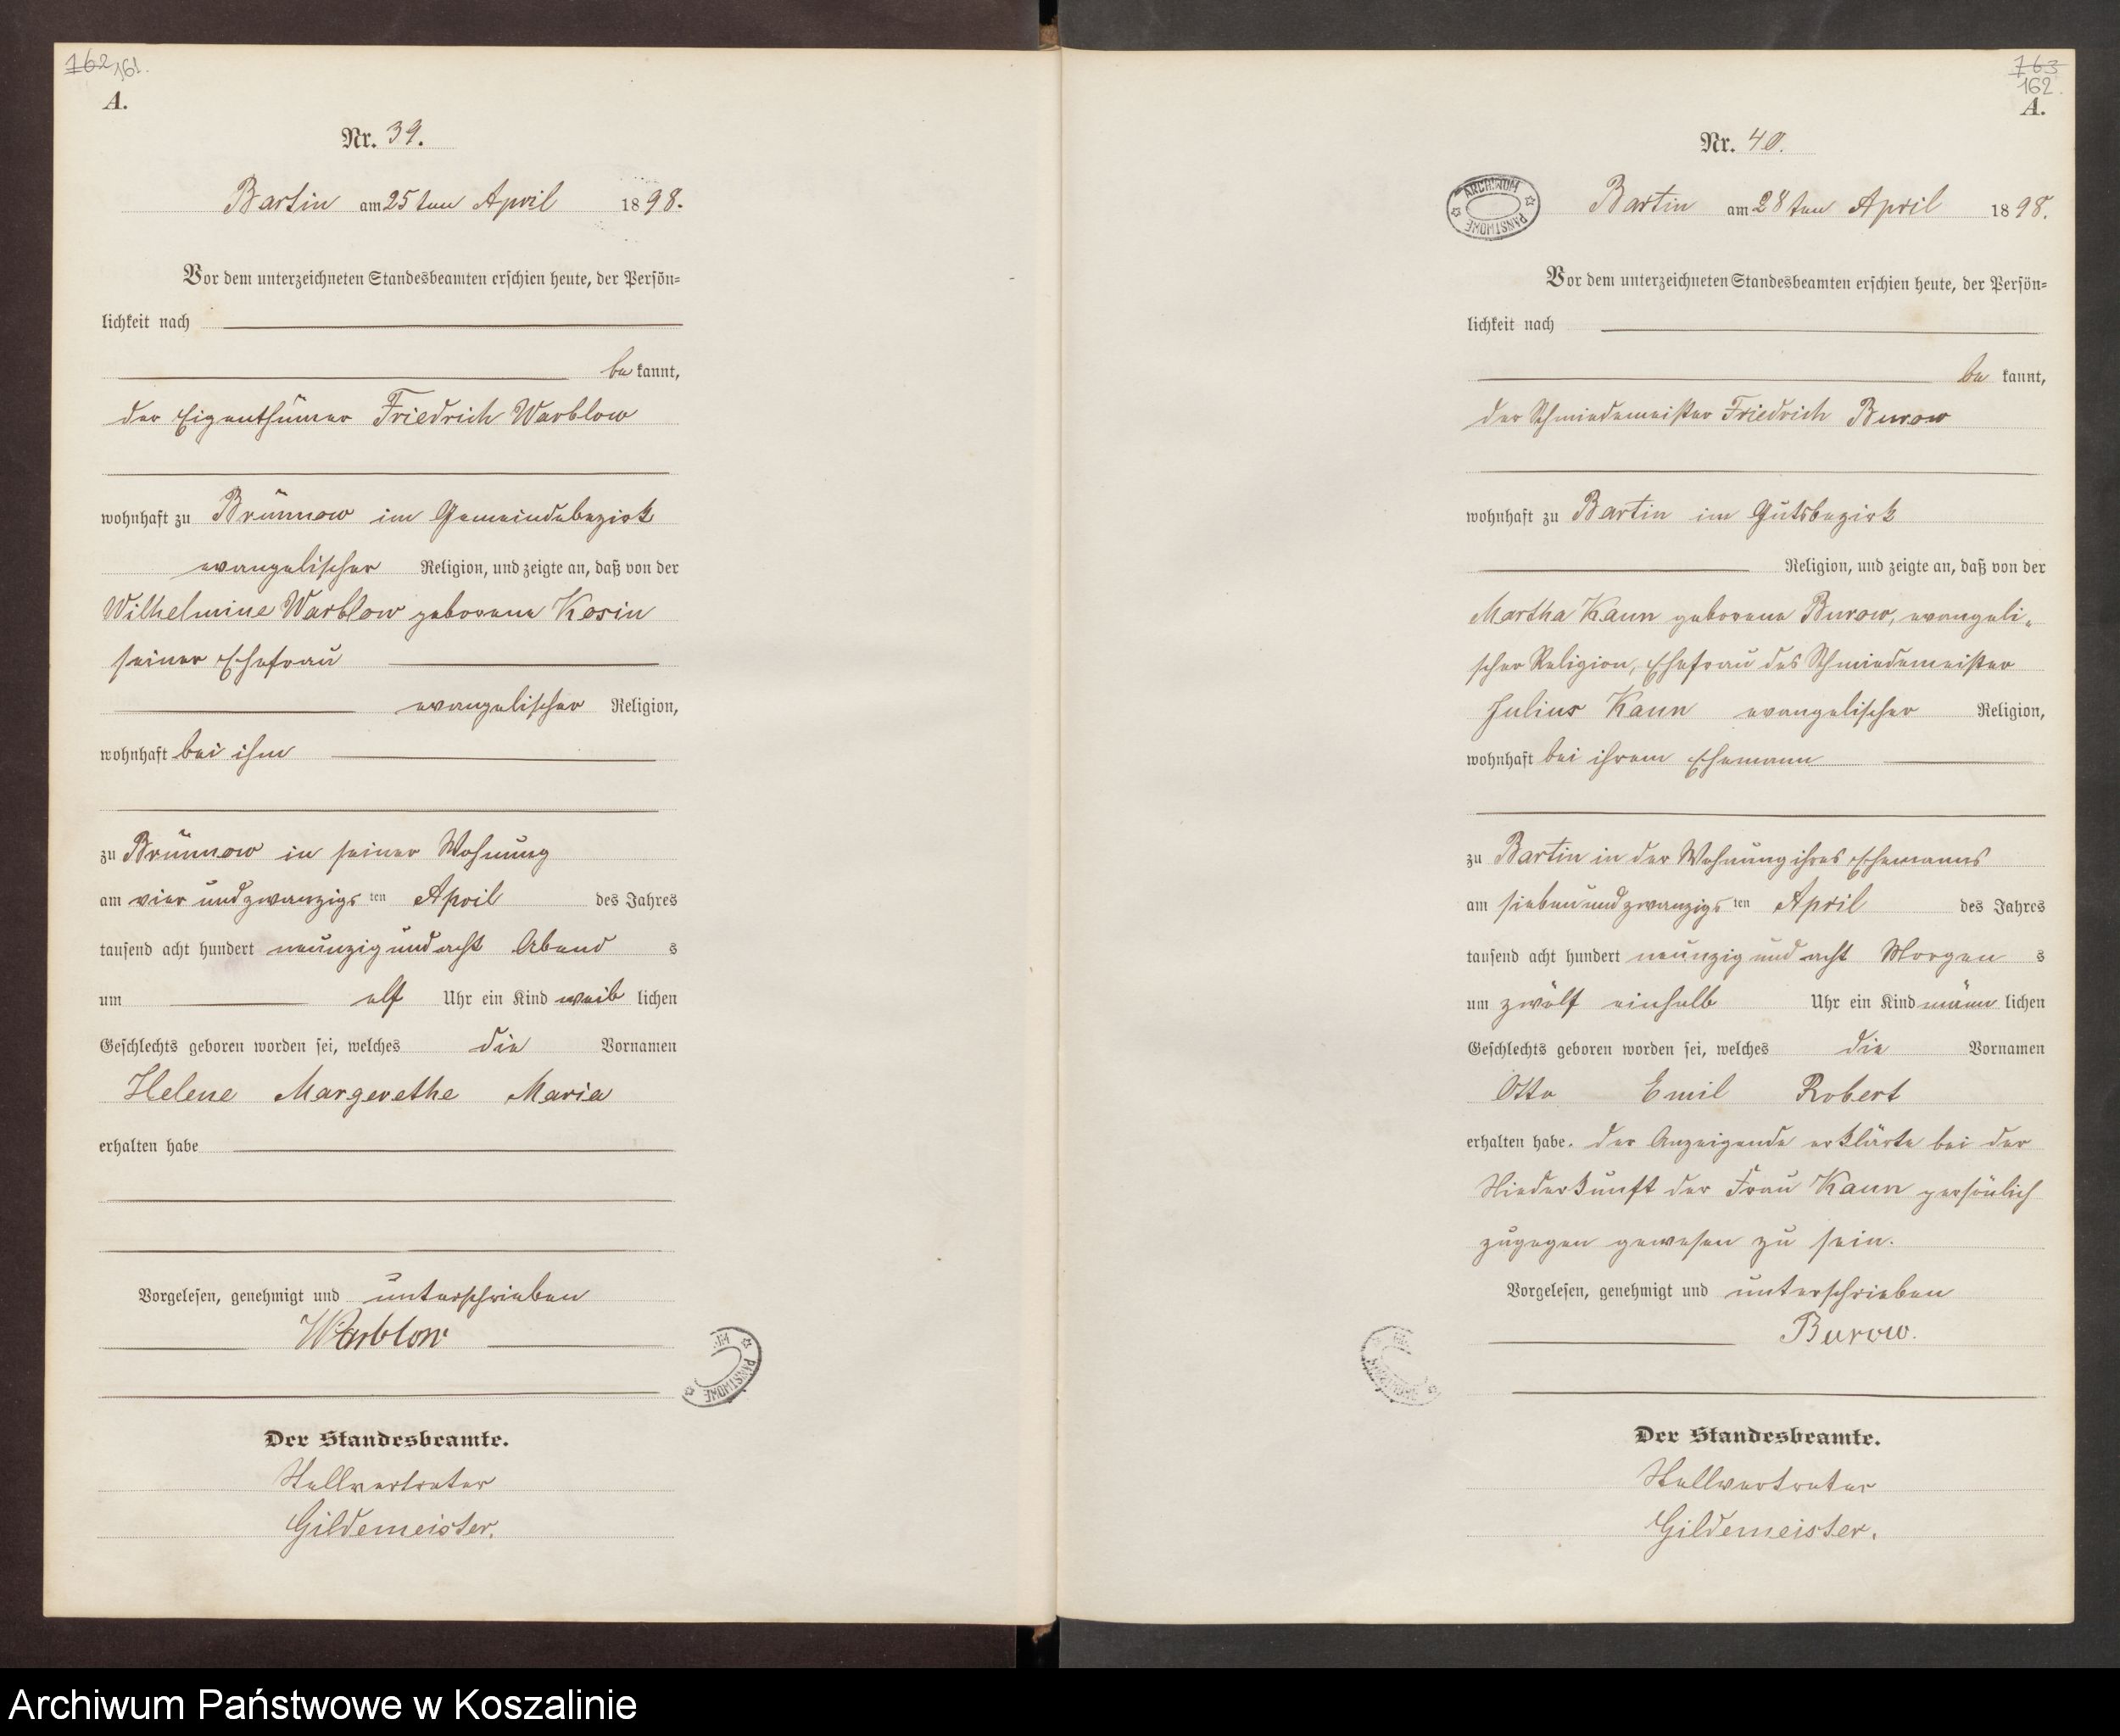 762 161.
A.
Nr. 39.
Bartin am 25ten April 1898.
Vor dem unterzeichneten Standesbeamten erschien heute, der Persön=
lichkeit nach
bekannt,
der Eigenthümer Friedrich Warblow
wohnhaft zu Brünnow im Gemeindebezirk
evangelischer Religion, und zeigte an, daß von der
Wilhelmine Warblow geborene Kosin
seiner Ehefrau
evangelischer Religion,
wohnhaft bei ihm
zu Brünnow in seiner Wohnung
am vier und zwanzigsten April des Jahres
tausend acht hundert neunzig und acht Abends
um elf Uhr ein Kind weiblichen
Geschlechts geboren worden sei, welches die Vornamen
Helene Margerethe Maria
erhalten habe
Vorgelesen, genehmigt und unterschrieben
Warblow
PAŃSTWOWE
Der Standesbeamte.
Stellvertreter
Gildemeister.
763
162.
A.
Nr. 40.
ARCHIWUM PAŃSTWOWE
Bartin am 28ten April 1898.
Vor dem unterzeichneten Standesbeamten erschien heute, der Persön=
lichkeit nach
bekannt,
der Schmiedemeister Friedrich Burow
wohnhaft zu Bartin im Gutsbezirk
Religion, und zeigte an, daß von der
Martha Kaun geborene Burow, evangeli-
scher Religion, Ehefrau des Schmiedemeister
Julius Kaun evangelischer Religion,
wohnhaft bei ihrem Ehemann
zu Bartin in der Wohnung ihres Ehemanns
am sieben und zwanzigsten April des Jahres
tausend acht hundert neunzig und acht Morgens
um zwölf einhalb Uhr ein Kind männlichen
Geschlechts geboren worden sei, welches die Vornamen
Otto Emil Robert
erhalten habe. Der Anzeigende erklärte bei der
Niederkunft der Frau Kaun persönlich
zugegen gewesen zu sein.
Vorgelesen, genehmigt und unterschrieben
Burow.
Der Standesbeamte.
Stellvertreter
Gildemeister.
Archiwum Państwowe w Koszalinie